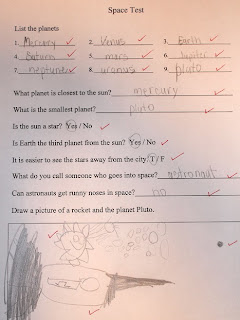 Space Test
List the planets
1. Mercury 2. Venus 3. Earth
4. Saturn 5. mars 6. Jupiter
7. neptune 8. uranus 9. pluto
What planet is closest to the sun? mercury
What is the smallest planet? pluto
Is the sun a star? Yes / No
Is Earth the third planet from the sun? Yes / No
It is easier to see the stars away from the city. T / F
What do you call someone who goes into space? astronaut
Can astronauts get runny noses in space? no
Draw a picture of a rocket and the planet Pluto.